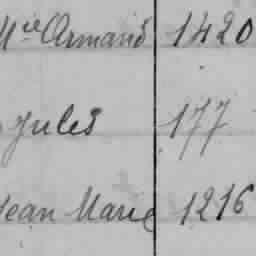 Mie Armand 1420
Jules 177
Jean Marie 1216